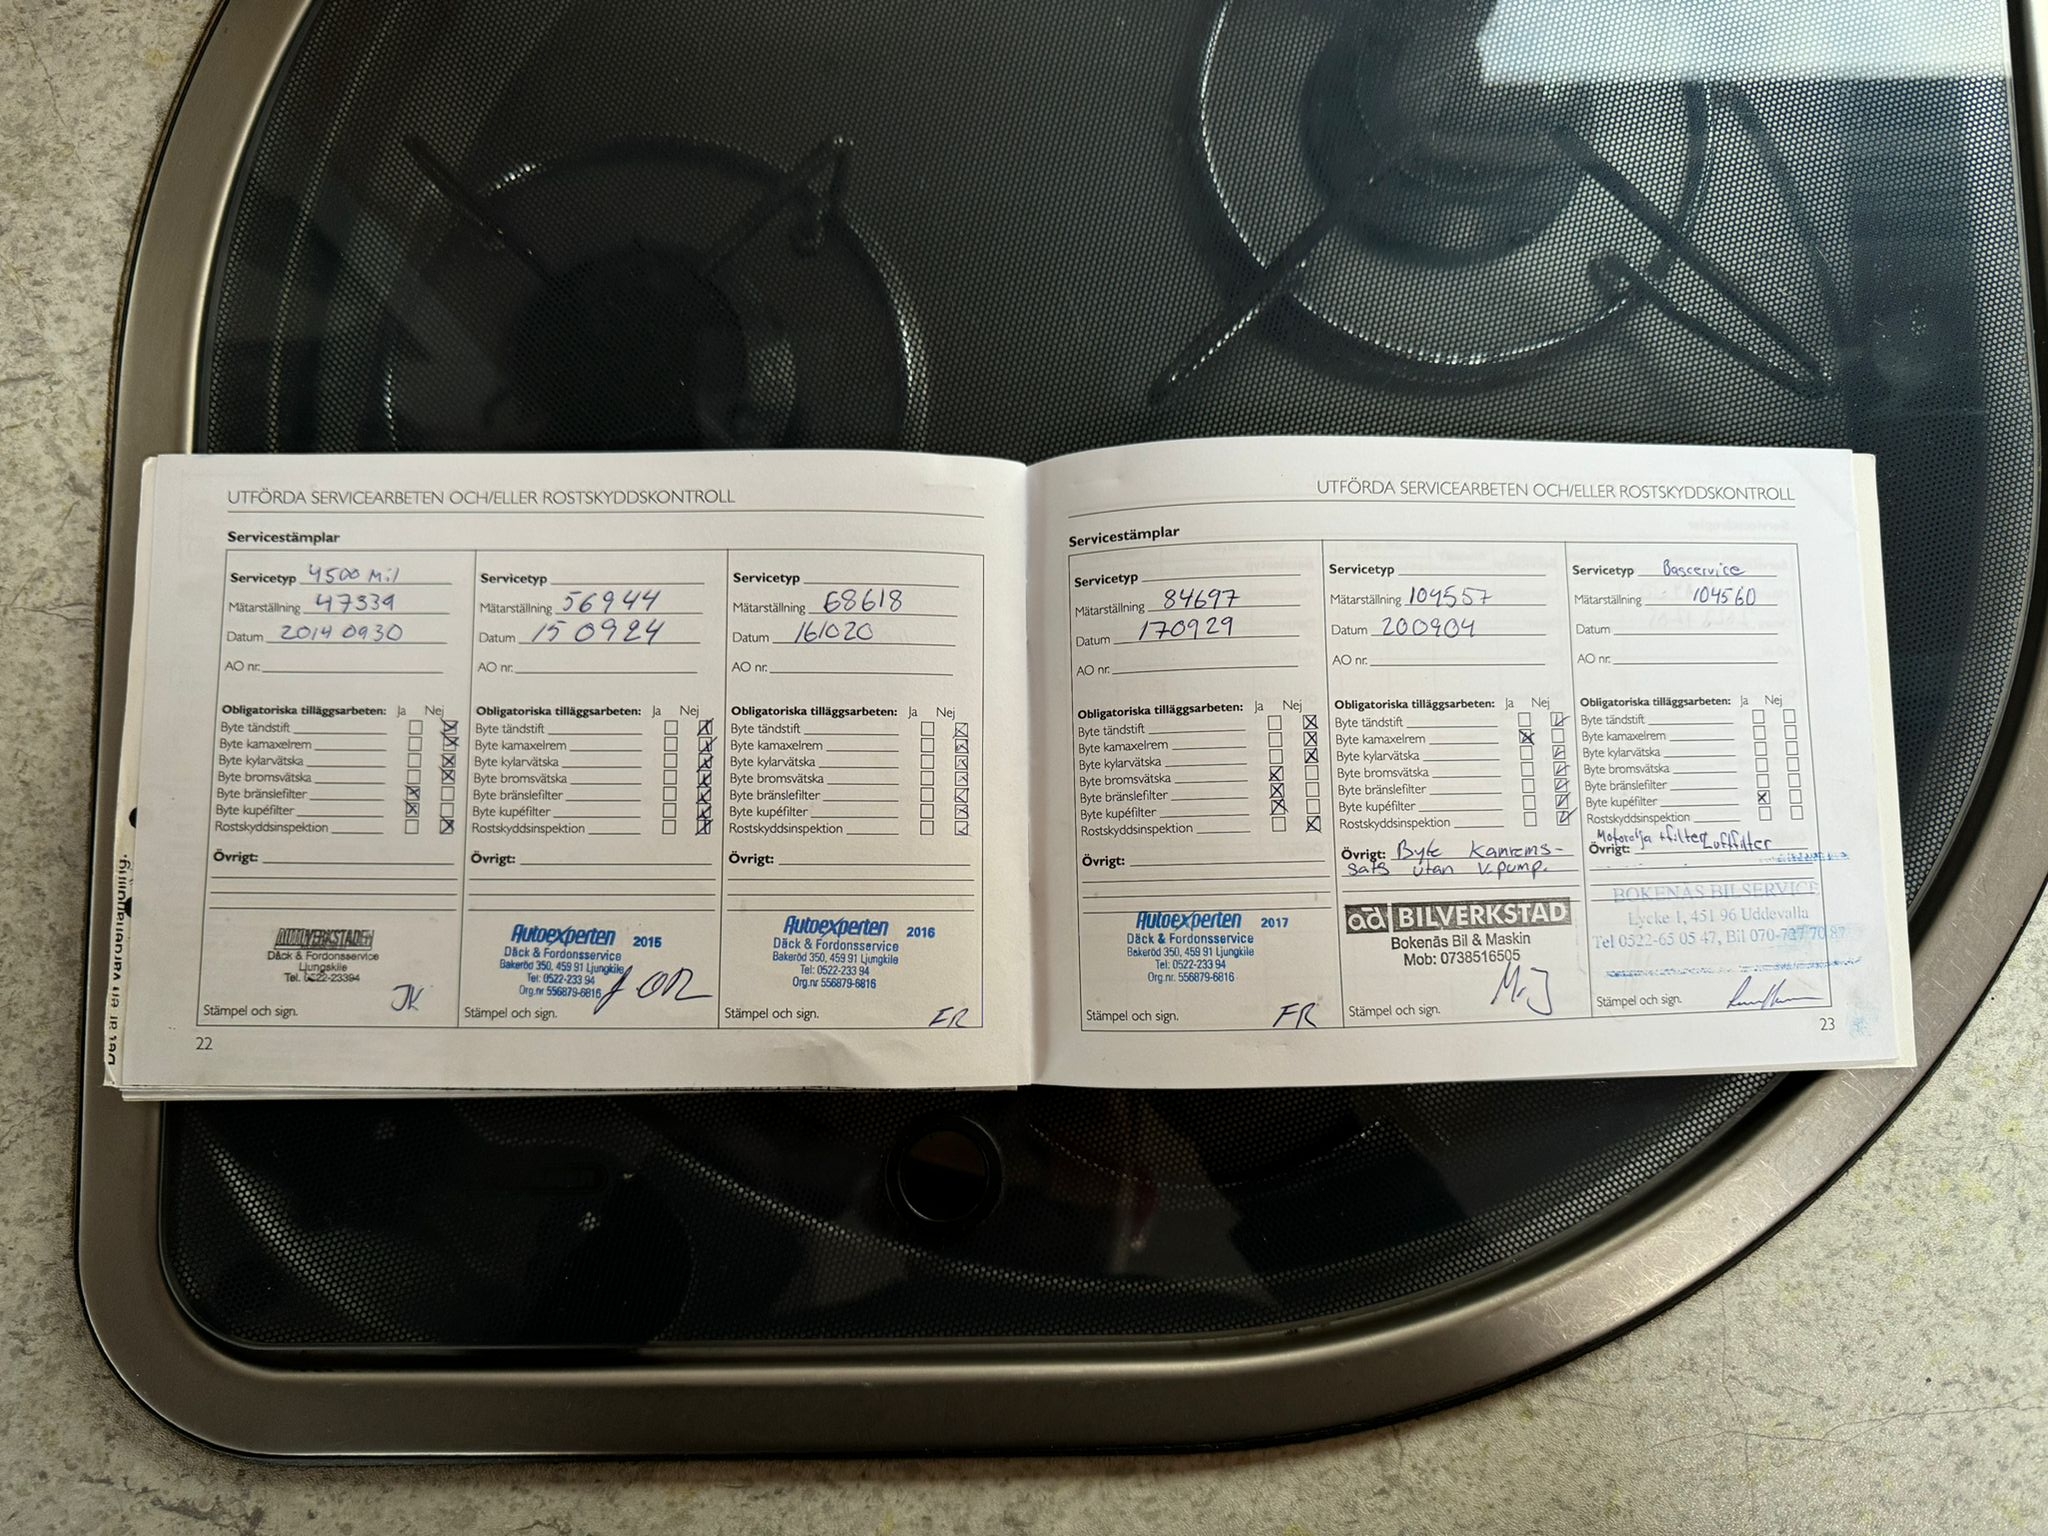 UTFÖRDA SERVICEARBETEN OCH/ELLER ROSTSKYDDSKONTROLL
Servicestämplar
Servicetyp 4500 Mil
Mätarställning 47339
Datum 20140930
AO nr.
Obligatoriska tilläggsarbeten: Ja Nej
Byte tändstift
Byte kamaxelrem
Byte kylarvätska
Byte bromsvätska
Byte bränslefilter
Byte kupéfilter
Rostskyddsinspektion
Övrigt:
AUTOVERKSTADEN
Däck & Fordonsservice
Ljungskile
Tel. 0522-23394
JK
Stämpel och sign.
Servicetyp
Mätarställning 56944
Datum 150924
AO nr.
Obligatoriska tilläggsarbeten: Ja Nej
Byte tändstift
Byte kamaxelrem
Byte kylarvätska
Byte bromsvätska
Byte bränslefilter
Byte kupéfilter
Rostskyddsinspektion
Övrigt:
Autoexperten 2015
Däck & Fordonsservice
Bakeröd 350, 459 91 Ljungkile
Tel: 0522-233 94
Org.nr 556879-6816
Stämpel och sign.
Servicetyp
Mätarställning 68618
Datum 161020
AO nr.
Obligatoriska tilläggsarbeten: Ja Nej
Byte tändstift
Byte kamaxelrem
Byte kylarvätska
Byte bromsvätska
Byte bränslefilter
Byte kupéfilter
Rostskyddsinspektion
Övrigt:
Autoexperten 2016
Däck & Fordonsservice
Bakeröd 350, 459 91 Ljungkile
Tel: 0522-233 94
Org.nr 556879-6816
Stämpel och sign. FR
22
UTFÖRDA SERVICEARBETEN OCH/ELLER ROSTSKYDDSKONTROLL
Servicestämplar
Servicetyp
Mätarställning 84697
Datum 170929
AO nr.
Obligatoriska tilläggsarbeten: Ja Nej
Byte tändstift
Byte kamaxelrem
Byte kylarvätska
Byte bromsvätska
Byte bränslefilter
Byte kupéfilter
Rostskyddsinspektion
Övrigt:
Autoexperten 2017
Däck & Fordonsservice
Bakeröd 350, 459 91 Ljungkile
Tel: 0522-233 94
Org.nr 556879-6816
Stämpel och sign. FR
Servicetyp
Mätarställning 104557
Datum 200904
AO nr.
Obligatoriska tilläggsarbeten: Ja Nej
Byte tändstift
Byte kamaxelrem
Byte kylarvätska
Byte bromsvätska
Byte bränslefilter
Byte kupéfilter
Rostskyddsinspektion
Övrigt: Byte Kamrems-
sats utan v.pump.
ad BILVERKSTAD
Bokenäs Bil & Maskin
Mob: 0738516505
Stämpel och sign.
Servicetyp Basservice
Mätarställning 104560
Datum
AO nr.
Obligatoriska tilläggsarbeten: Ja Nej
Byte tändstift
Byte kamaxelrem
Byte kylarvätska
Byte bromsvätska
Byte bränslefilter
Byte kupéfilter
Rostskyddsinspektion
Motorolja +filter
Övrigt: Luftfilter
BOKENÄS BILSERVICE
Lycke 1, 451 96 Uddevalla
Tel 0522-65 05 47, Bil 070-727 70 87
Stämpel och sign.
23